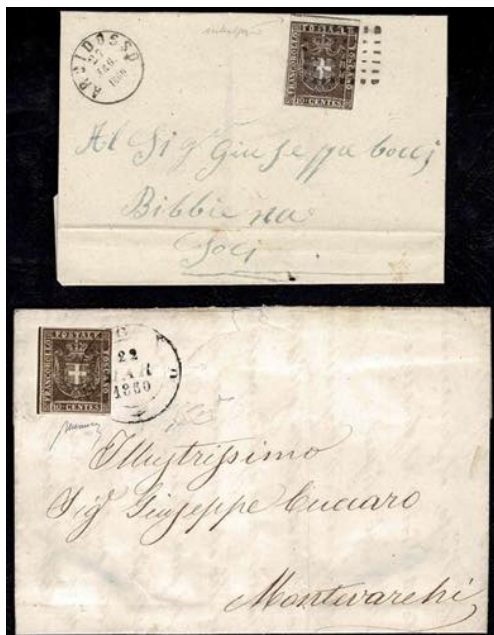 ARCIDOSSO
FRANCOBOLLO
POSTALE
TOSCANO
10 CENTES
Al Sig Giuseppe bocci
Bibbiena
Soci
FRANCOBOLLO
POSTALE
TOSCANO
10 CENTES
22
MAR
1860
Illustrissimo
Sig Giuseppe Cuccaro
Montevarchi